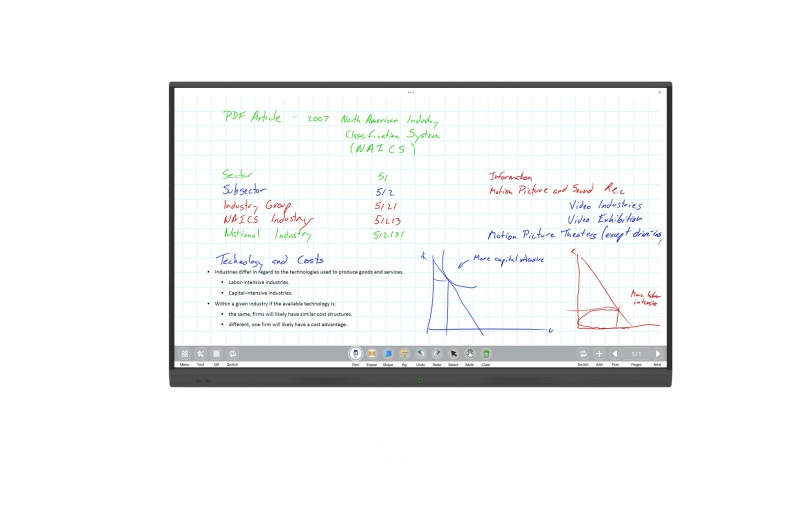 PDF Article - 2007 North American Industry
Classification System
(NAICS)
Sector 51 Information
Subsector 512 Motion Picture and Sound Rec
Industry Group 5121 Video Industries
NAICS Industry 51213 Video Exhibition
National Industry 512131 Motion Picture Theaters (except drive-ins,
Technology and Costs
• Industries differ in regard to the technologies used to produce goods and services.
• Labor-intensive industries.
• Capital-intensive industries.
• Within a given industry if the available technology is:
• the same, firms will likely have similar cost structures.
• different, one firm will likely have a cost advantage.
K
More capital intensive
K
More labor
intensive
Menu Tool QR Switch Pen Eraser Shape Bg Undo Redo Select Multi Clear Switch Add Prev Pages Next
1/1